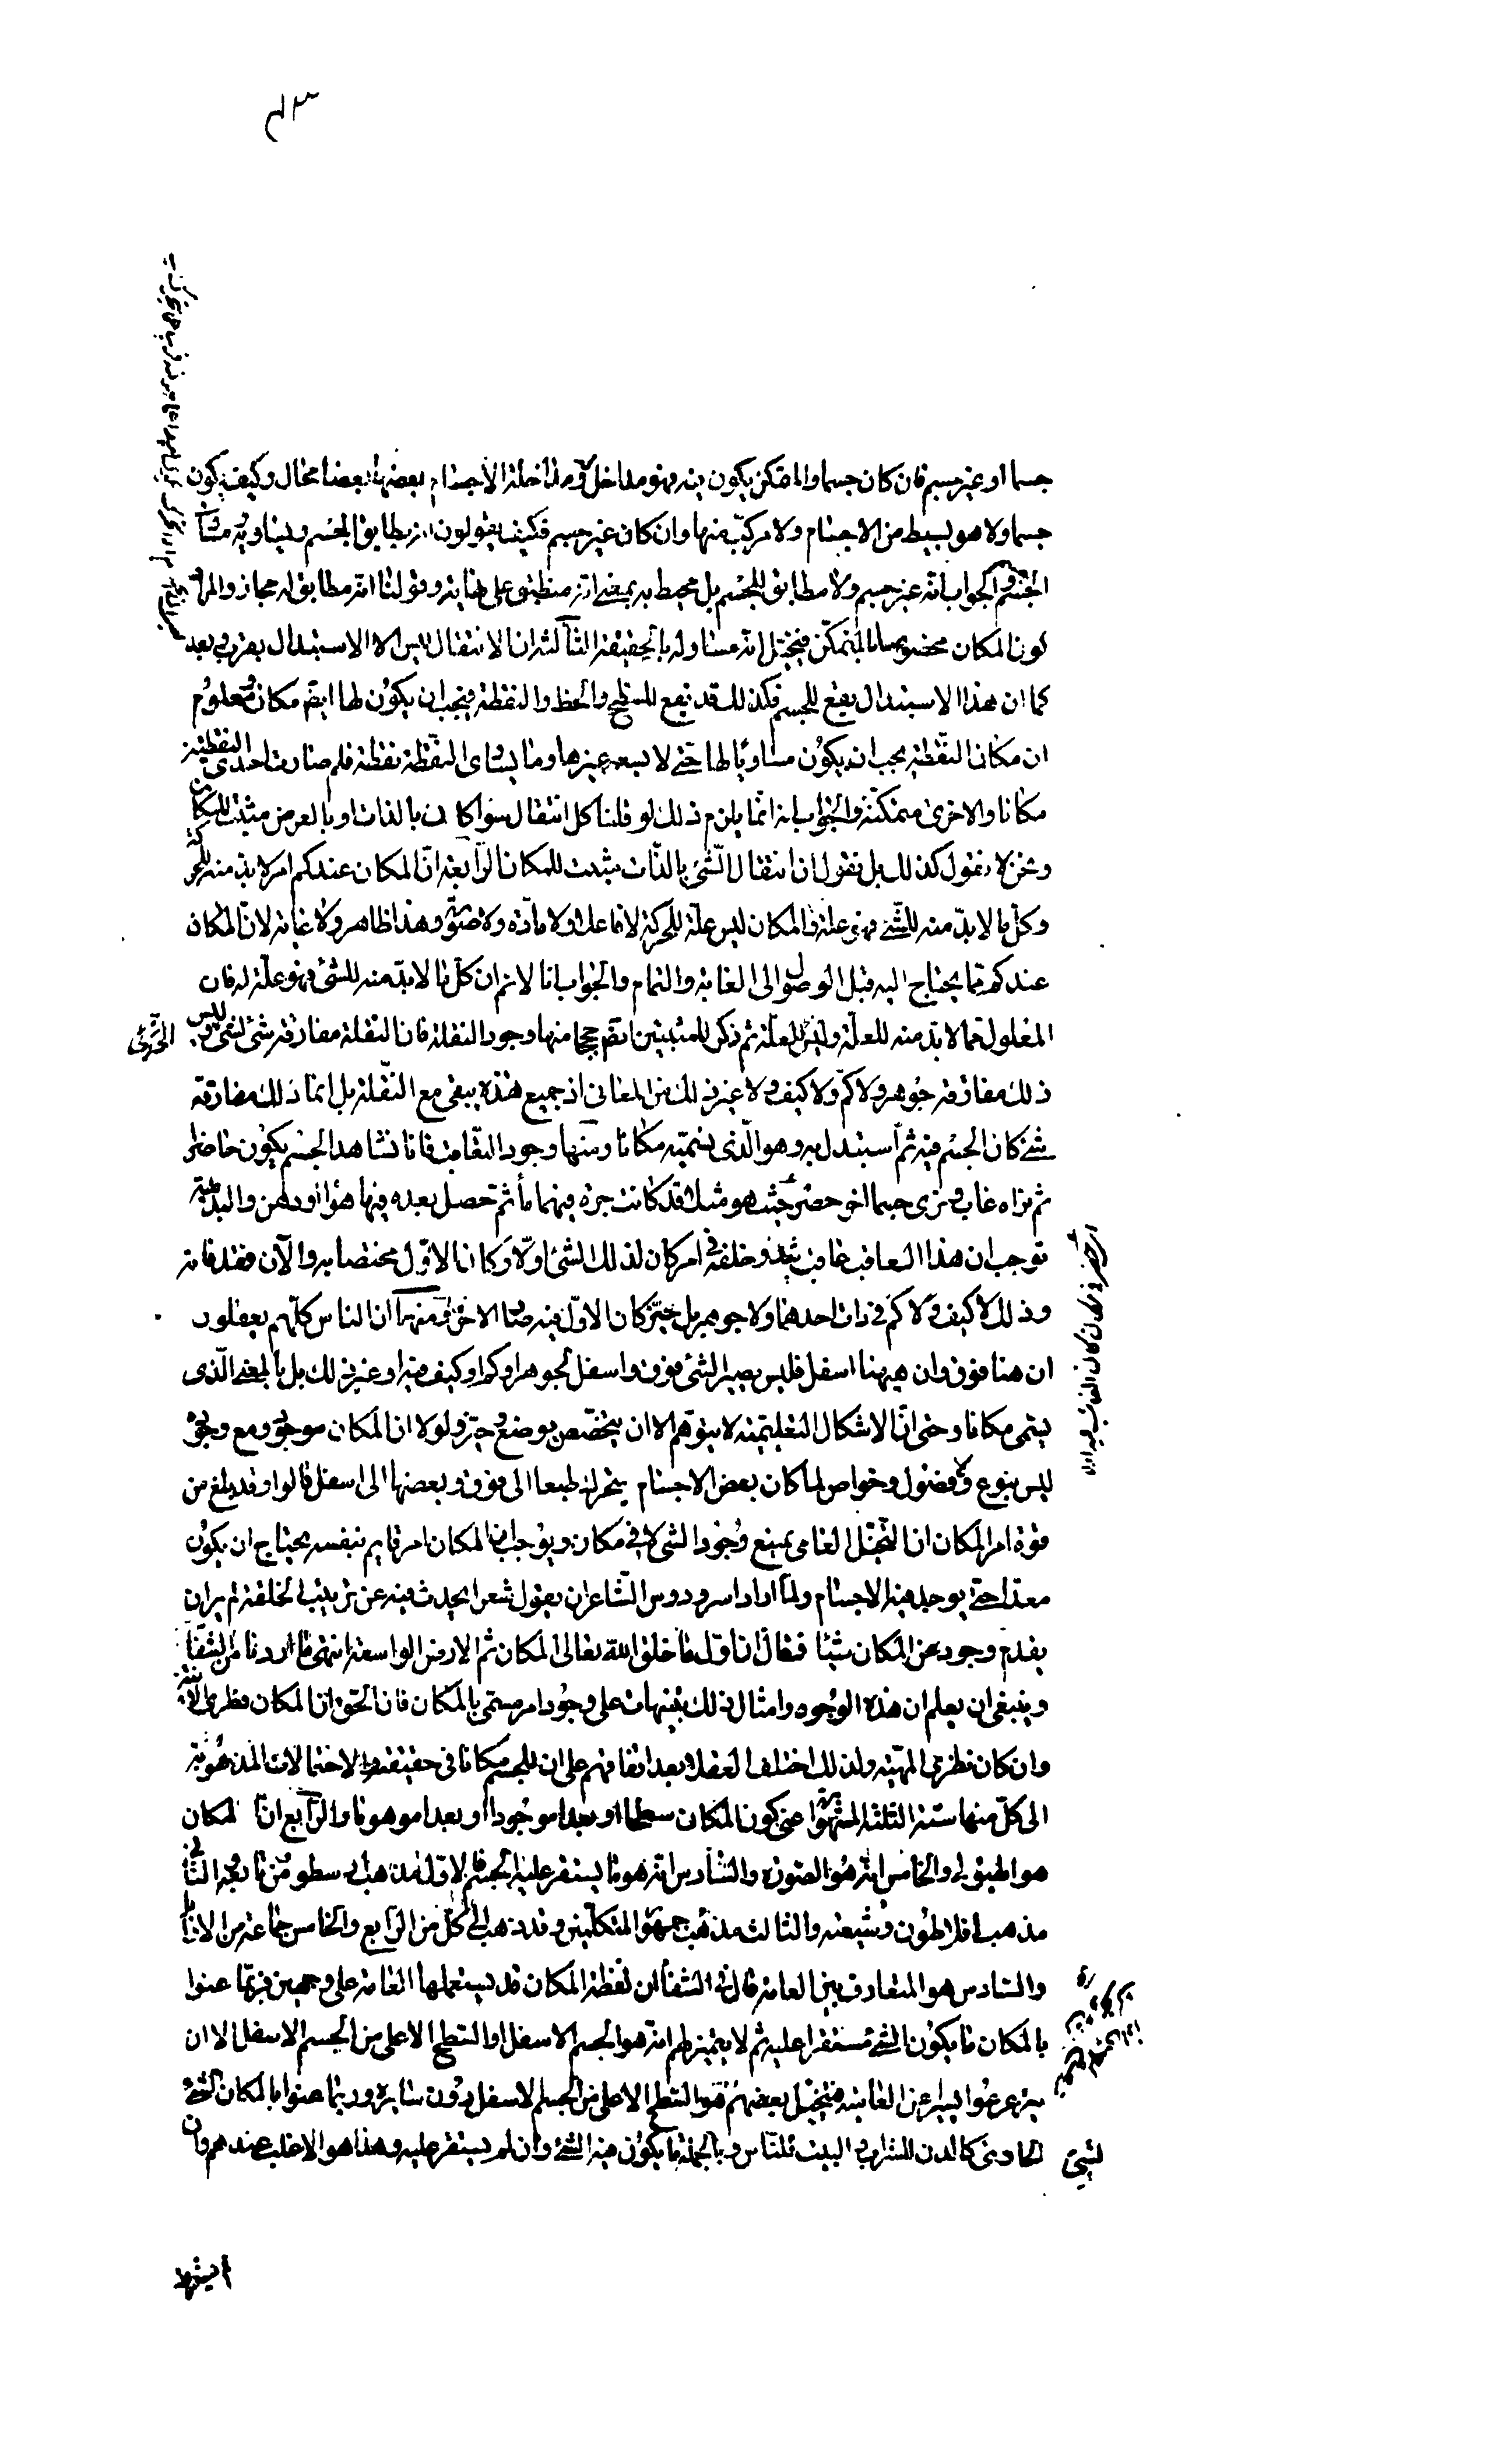 جسما او غير جسم فان كان جسما والمتمكن يكون فيه فهو مداخل له ومداخلة الأجسام بعضها بعضا محال وكيف يكون
جسما ولا هو بسيط من الاجسام ولا مركّب منها وان كان غير جسم فكيف يقولون انه يطابق الجسم ويساويه ومساوي
الجسم جسم والجواب انّه غير جسم ولا مطابق للجسم بل محيط به بمعنى انّه منطبق على نهايته وقولنا انّه مطابق له مجاز والمراد
كون المكان مخصوصا بالمتمكّن فيتخيّل انّه مساو له بالحقيقة الثّالث ان الانتقال ليس الا الاستبدال بقرب وبعد
كما ان هذا الاستبدال يقع للجسم فكذلك قد يقع للسطح والخط والنقطة فيجب ان يكون لها ايضا مكان ومعلوم
ان مكان النقطة يجب ان يكون مساويا لها حتى لا يسع غيرها وما يساوى النقطة نقطة فلم صارت احدى النقطتين
مكانا والاخرى متمكنة والجواب انه انّما يلزم ذلك لو قلنا كل انتقال سواء كان بالذات او بالعرض مثبت للمكان
ونحن لا نقول كذلك بل نقول ان انتقال الشّئ بالذّات يثبت للمكان الرّابع انّ المكان عندكم امر لا بد منه للحركة
وكل ما لا بدّ منه للشّئ فهى علة فالمكان ليس علّة للحركة لا فاعلة ولا مادّة ولا صورة وهذا ظاهر ولا غاية لانّ المكان
عندكم مما يحتاج اليه قبل الوصول الى الغاية والتمام والجواب انا لا نم ان كل ما لا بدّ منه للشئ فهو علّة له فان
المعلول مما لا بد منه للعلّة وليس للعلّة ثم ذكر للمثبتين ايضا حججا منها وجود النقلة فان النقلة مفارقة شئ لشئ وليس
ذلك مفارقة جوهر ولا كمّ ولا كيف ولا غير ذلك من المعانى اذ جميع هذه يبقى مع النّقلة بل انما ذلك مفارقة
شئ كان الجسم فيه ثم استبدل به وهو الّذى نسمّيه مكانا ومنها وجود التعاقب فانا نشاهد الجسم يكون حاضرا
ثم نراه غاب ونرى جسما اخر حضر حيث هو مثلا قد كانت جرة فيها ماء ثم حصل بعده فيها هواء او دهن والبديهة
توجب ان هذا المعاقب عاقب شيئا وخلفه فى امر كان لذلك الشئ اولا وكان الاوّل مختصا به والآن فقد فاته
وذلك لا كيف ولا كم فى ذات احدهما ولا جوهر بل حيّز كان الاوّل فيه صار الاخر فيه ومنها ان الناس كلّهم يعقلون
ان هنا فوق وان هيهنا اسفل فليس يصير الشئ فوق واسفل لجوهر او كم او كيف فيه او غير ذلك بل بالمعنى الّذى
يسمى مكانا وحتى انّ الاشكال التعليمية لا يتوهم الا ان يتخصّص بوضع وحيّز ولولا ان المكان موجود ومع وجوده
ليس بنوع وفصول وخواص لما كان بعض الاجسام يتحرك طبعا الى فوق وبعضها الى اسفل قالوا وقد بلغ من
قوة امر المكان ان التخيّل العامى يمنع وجود الشئ لا فى مكان ويوجب ان المكان امر قايم بنفسه يحتاج ان يكون
معدّا حتى يوجد فيه الاجسام ولما اراد اسرودوس الشّاعر ان يقول شعرا يحدث فيه عن ترتيب الخلقة لم ير ان
يقدم وجود عن المكان شيئا فقال ان اوّل ما خلق الله تعالى المكان ثم الارض الواسعة انتهى ما اردنا من الشفاء
وينبغى ان يعلم ان هذه الوجوه وامثال ذلك تنبيهات على وجود امر مسمى بالمكان فان الحق ان المكان فطرى الانية
وان كان نظرى المهيّة ولذلك اختلف العقلاء بعد اتفاقهم على ان للجسم مكانا فى حقيقته والاحتمالات المذهوبة
الى كلّ منها ستة الثلثة المشهورة اعنى كون المكان سطحا او بعدا موجودا او بعدا موهوما والرّابع انّ المكان
هو الهيولى والخامس انّه هو الصورة والسّادس انّه هو ما يستقر عليه الجسم فالاوّل مذهب ارسطو ومن تابعه والثانى
مذهب افلاطون وشيعته والثالث مذهب جمهور المتكلّمين وقد ذهب الى كلّ من الرّابع والخامس جماعة من الاوائل
والسّادس هو المتعارف بين العامة قال فى الشفأ ان لفظة المكان قد يستعملها العامة على وجهين فربّما عنوا
بالمكان ما يكون الشئ مستقرا عليه ثم لا يتميز لهم انّه هو الجسم الاسفل او السّطح الاعلى من الجسم الاسفل الا ان
يتزعزعوا يسيرا عن العامية فيتخيل بعضهم انه هو السّطح الاعلى من الجسم الاسفل دون سايره وربّما عنوا بالمكان الشئ
الحاوى كالدن للشراب والبيت للنّاس وبالجملة ما يكون فيه الشئ وان لم يستقر عليه وهذا هو الاغلب عندهم وان
لشئ